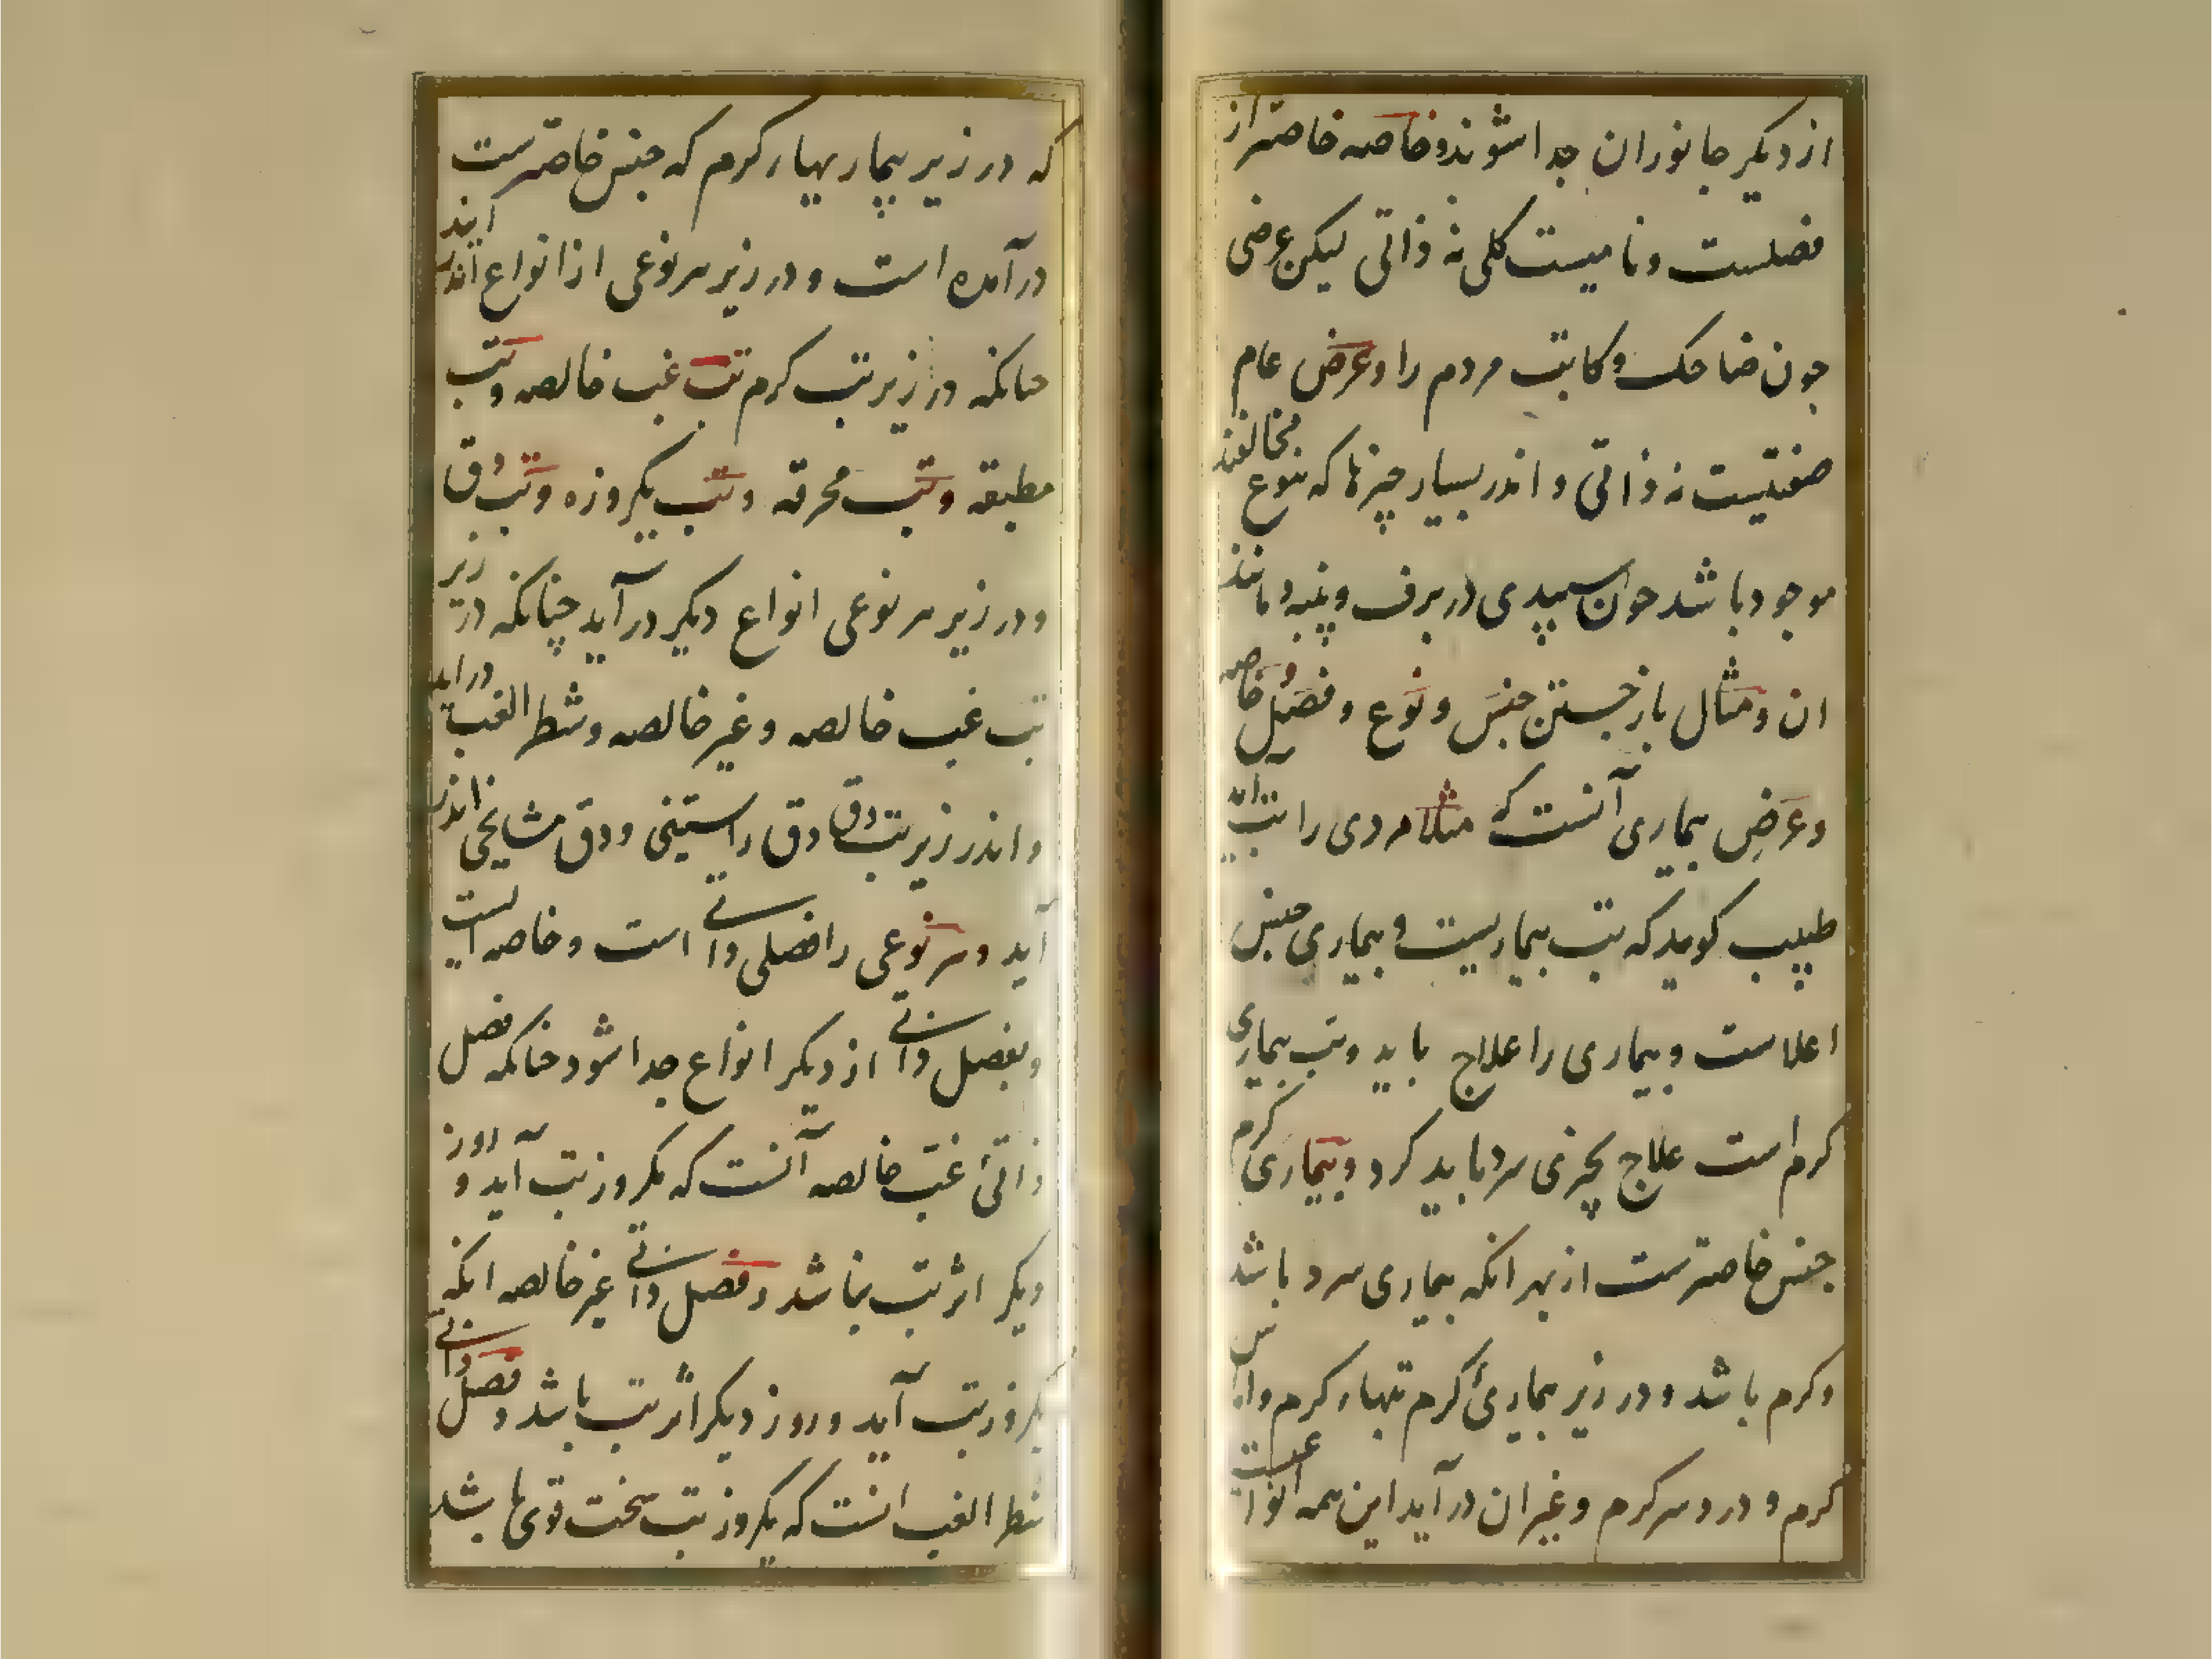 از دیکر جانوران جدا شوند و خاصه خاصتر از
فصلست و نامیست کلی نه ذاتی لیکن عرضی
جون ضاحک و کاتب مردم را و عرض عام
صفتیست نه ذاتی و اندر بسیار چیزها که بنوع مخالفند
موجود باشد جون سپیدی در برف و پنبه و مانند
ان و مثال باز جستن جنس و نوع و فصل و خاصه
و عرض بیماری آنست که مثلا مردی را تب اید
طبیب کوید که تب بیماریست و بیماری جنس
اعلاست و بیماری را علاج باید و تب بیماری
کرم است علاج بچیزی سرد باید کرد و بیماری کرم
جنس خاصترست از بهر انکه بیماری سرد باشد
و کرم باشد و در زیر بیماری کرم تبهاء کرم و اماس
کرم و درد سر کرم و غیر ان در آید این همه انواعست
که در زیر بیماریهاء کرم که جنس خاصترست
درآمده است و در زیر هر نوعی از انواع اندر ایند
جنانکه در زیر تب کرم تب غب خالصه و تب
مطبقه و تب محرقه و تب یکروزه و تب دق
و در زیر هر نوعی انواع دیکر درآید چنانکه در زیر
تب غب خالصه و غیر خالصه و شطر الغب دراید
و اندر زیر تب دق دق راستینی و دق مشایخی اندر
آید و هر نوعی را فصلی ذاتی است و خاصه ایست
و بفصل ذاتی از دیکر انواع جدا شود جنانکه فصل
ذاتی غب خالصه آنست که یکروز تب آید و روز
دیکر اثر تب نباشد و فصل ذاتی غیر خالصه انکه
یکروز تب آید و روز دیکر اثر تب باشد و فصل ذاتی
شطر الغب انست که یکروز تب سخت قوی باشد